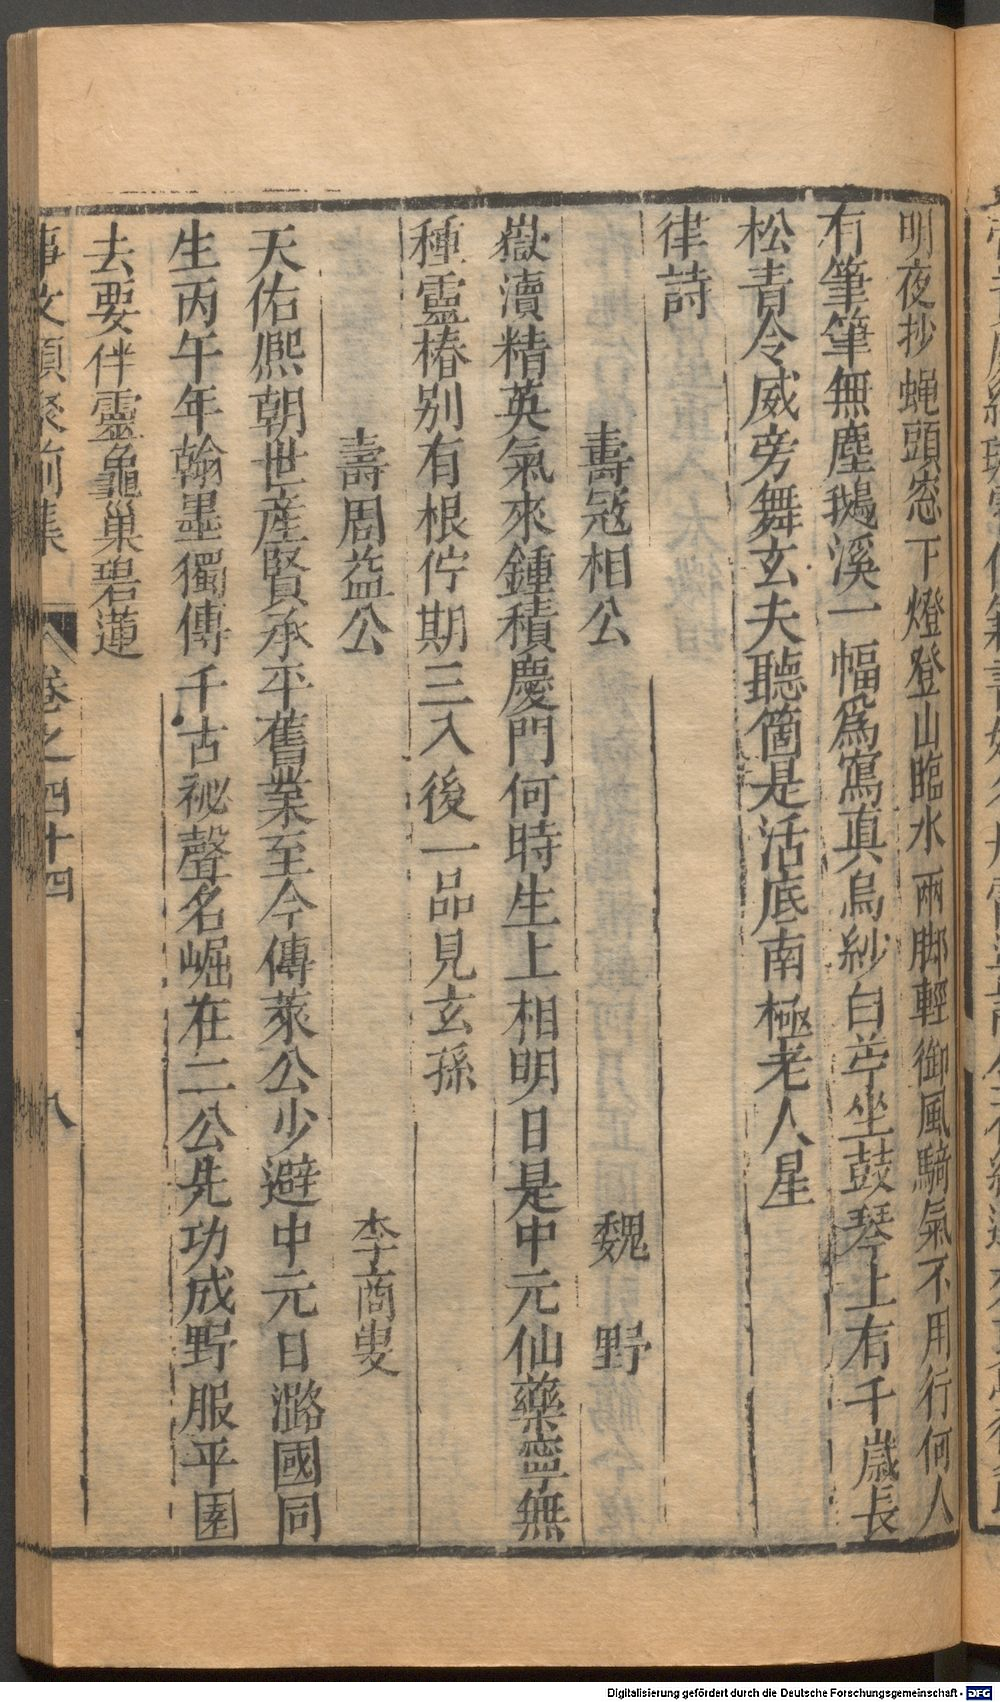 明夜抄蝇頭窓下燈登山臨水兩脚輕御風騎氣不用行何人
有筆筆無塵鵝溪一幅爲寫真烏紗白苧坐鼓琴上有千歲長
松青令威旁舞玄夫聽箇是活底南極老人星
律詩
壽冦相公　魏野
嶽瀆精英氣來鍾積慶門何時生上相明日是中元仙藥寧無
種靈椿别有根佇期三入後一品見玄孫
壽周益公　李商叟
天佑熈朝世産賢承平舊業至今傳萊公少避中元日潞國同
生丙午年翰墨獨傳千古祕聲名崛在二公先功成野服平園
去要伴靈龜巢碧蓮
事文類聚前集　卷之四十四　八
Digitalisierung gefördert durch die Deutsche Forschungsgemeinschaft - DFG